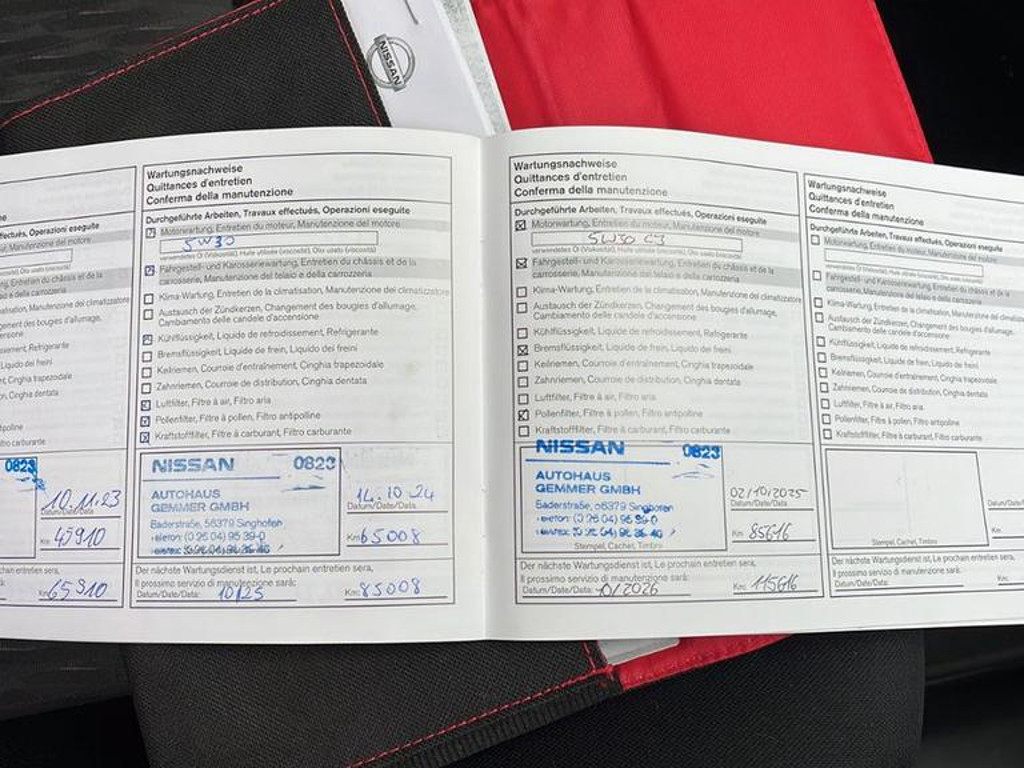 NISSAN
ne
ffectués, Operazioni eseguite
teur, Manutenzione del motore
cosité), Olio usato (viscosità)
g, Entretien du châssis et de la
o e della carrozzeria
n, Manutenzione dei climatizzatore
gement des bougies d'allumage,
ensione
sement, Refrigerante
ido dei freni
ent, Cinghia trapezoidale
n, Cinghia dentata
tipolline
tro carburante
0823
10.11.23
Datum/Date/Data
Km: 45910
chain entretien sera,
rà:
Km: 65910
Wartungsnachweise
Quittances d'entretien
Conferma della manutenzione
Durchgeführte Arbeiten, Travaux effectués, Operazioni eseguite
Motorwartung, Entretien du moteur, Manutenzione del motore
5W30
verwendetes Öl (Viskosität), Huile utilisée (viscosité), Olio usato (viscosità)
Fahrgestell- und Karosseriewartung, Entretien du châssis et de la
carrosserie, Manutenzione del telaio e della carrozzeria
Klima-Wartung, Entretien de la climatisation, Manutenzione dei climatizzatore
Austausch der Zündkerzen, Changement des bougies d'allumage,
Cambiamento delle candele d'accensione
Kühlflüssigkeit, Liquide de refroidissement, Refrigerante
Bremsflüssigkeit, Liquide de frein, Liquido dei freni
Keilriemen, Courroie d'entraînement, Cinghia trapezoidale
Zahnriemen, Courroie de distribution, Cinghia dentata
Luftfilter, Filtre à air, Filtro aria
Pollenfilter, Filtre à pollen, Filtro antipolline
Kraftstofffilter, Filtre à carburant, Filtro carburante
NISSAN 0823
AUTOHAUS
GEMMER GMBH
Baderstraße, 56379 Singhofen
Telefon: (0 26 04) 95 39-0
14.10.24
Datum/Date/Data
Km: 65008
Der nächste Wartungsdienst ist, Le prochain entretien sera,
Il prossimo servizio di manutenzione sarà:
Datum/Date/Data: 10/25 Km: 85008
Wartungsnachweise
Quittances d'entretien
Conferma della manutenzione
Durchgeführte Arbeiten, Travaux effectués, Operazioni eseguite
Motorwartung, Entretien du moteur, Manutenzione del motore
5W30 C3
verwendetes Öl (Viskosität), Huile utilisée (viscosité), Olio usato (viscosità)
Fahrgestell- und Karosseriewartung, Entretien du châssis et de la
carrosserie, Manutenzione del telaio e della carrozzeria
Klima-Wartung, Entretien de la climatisation, Manutenzione dei climatizzatore
Austausch der Zündkerzen, Changement des bougies d'allumage,
Cambiamento delle candele d'accensione
Kühlflüssigkeit, Liquide de refroidissement, Refrigerante
Bremsflüssigkeit, Liquide de frein, Liquido dei freni
Keilriemen, Courroie d'entraînement, Cinghia trapezoidale
Zahnriemen, Courroie de distribution, Cinghia dentata
Luftfilter, Filtre à air, Filtro aria
Pollenfilter, Filtre à pollen, Filtro antipolline
Kraftstofffilter, Filtre à carburant, Filtro carburante
NISSAN 0823
AUTOHAUS
GEMMER GMBH
Baderstraße, 56379 Singhofen
Telefon: (0 26 04) 95 39-0
Stempel, Cachet, Timbro
02/10/2025
Datum/Date/Data
Km: 85616
Der nächste Wartungsdienst ist, Le prochain entretien sera,
Il prossimo servizio di manutenzione sarà:
Datum/Date/Data: 10/2026 Km: 115616
Wartungsnachweise
Quittances d'entretien
Conferma della manutenzione
Durchgeführte Arbeiten, Travaux effectués, Operazioni eseguite
Motorwartung, Entretien du moteur, Manutenzione del motore
verwendetes Öl (Viskosität), Huile utilisée (viscosité), Olio usato (viscosità)
Fahrgestell- und Karosseriewartung, Entretien du châssis et de la
carrosserie, Manutenzione del telaio e della carrozzeria
Klima-Wartung, Entretien de la climatisation, Manutenzione dei climatizzatore
Austausch der Zündkerzen, Changement des bougies d'allumage,
Cambiamento delle candele d'accensione
Kühlflüssigkeit, Liquide de refroidissement, Refrigerante
Bremsflüssigkeit, Liquide de frein, Liquido dei freni
Keilriemen, Courroie d'entraînement, Cinghia trapezoidale
Zahnriemen, Courroie de distribution, Cinghia dentata
Luftfilter, Filtre à air, Filtro aria
Pollenfilter, Filtre à pollen, Filtro antipolline
Kraftstofffilter, Filtre à carburant, Filtro carburante
Stempel, Cachet, Timbro
Datum/Date/
Km:
Der nächste Wartungsdienst ist, Le prochain entretien sera,
Il prossimo servizio di manutenzione sarà:
Datum/Date/Data: Km: